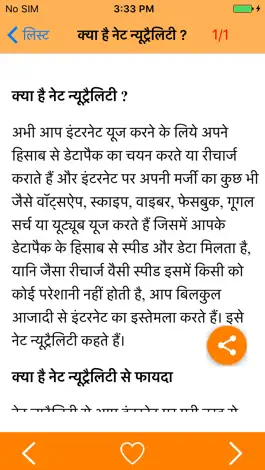 No SIM 3:33 PM
लिस्ट क्या है नेट न्यूट्रैलिटी ? 1/1
क्या है नेट न्यूट्रैलिटी ?
अभी आप इंटरनेट यूज करने के लिये अपने
हिसाब से डेटापैक का चयन करते या रीचार्ज
कराते हैं और इंटरनेट पर अपनी मर्जी का कुछ भी
जैसे वॉट्सऐप, स्काइप, वाइबर, फेसबुक, गूगल
सर्च या यूट्यूब यूज करते हैं जिसमें आपके
डेटापैक के हिसाब से स्पीड और डेटा मिलता है,
यानि जैसा रीचार्ज वैसी स्पीड इसमें किसी को
कोई परेशानी नहीं होती है, आप बिलकुल
आजादी से इंटरनेट का इस्तेमला करते हैं। इसे
नेट न्यूट्रैलिटी कहते हैं।
क्या है नेट न्यूट्रैलिटी से फायदा